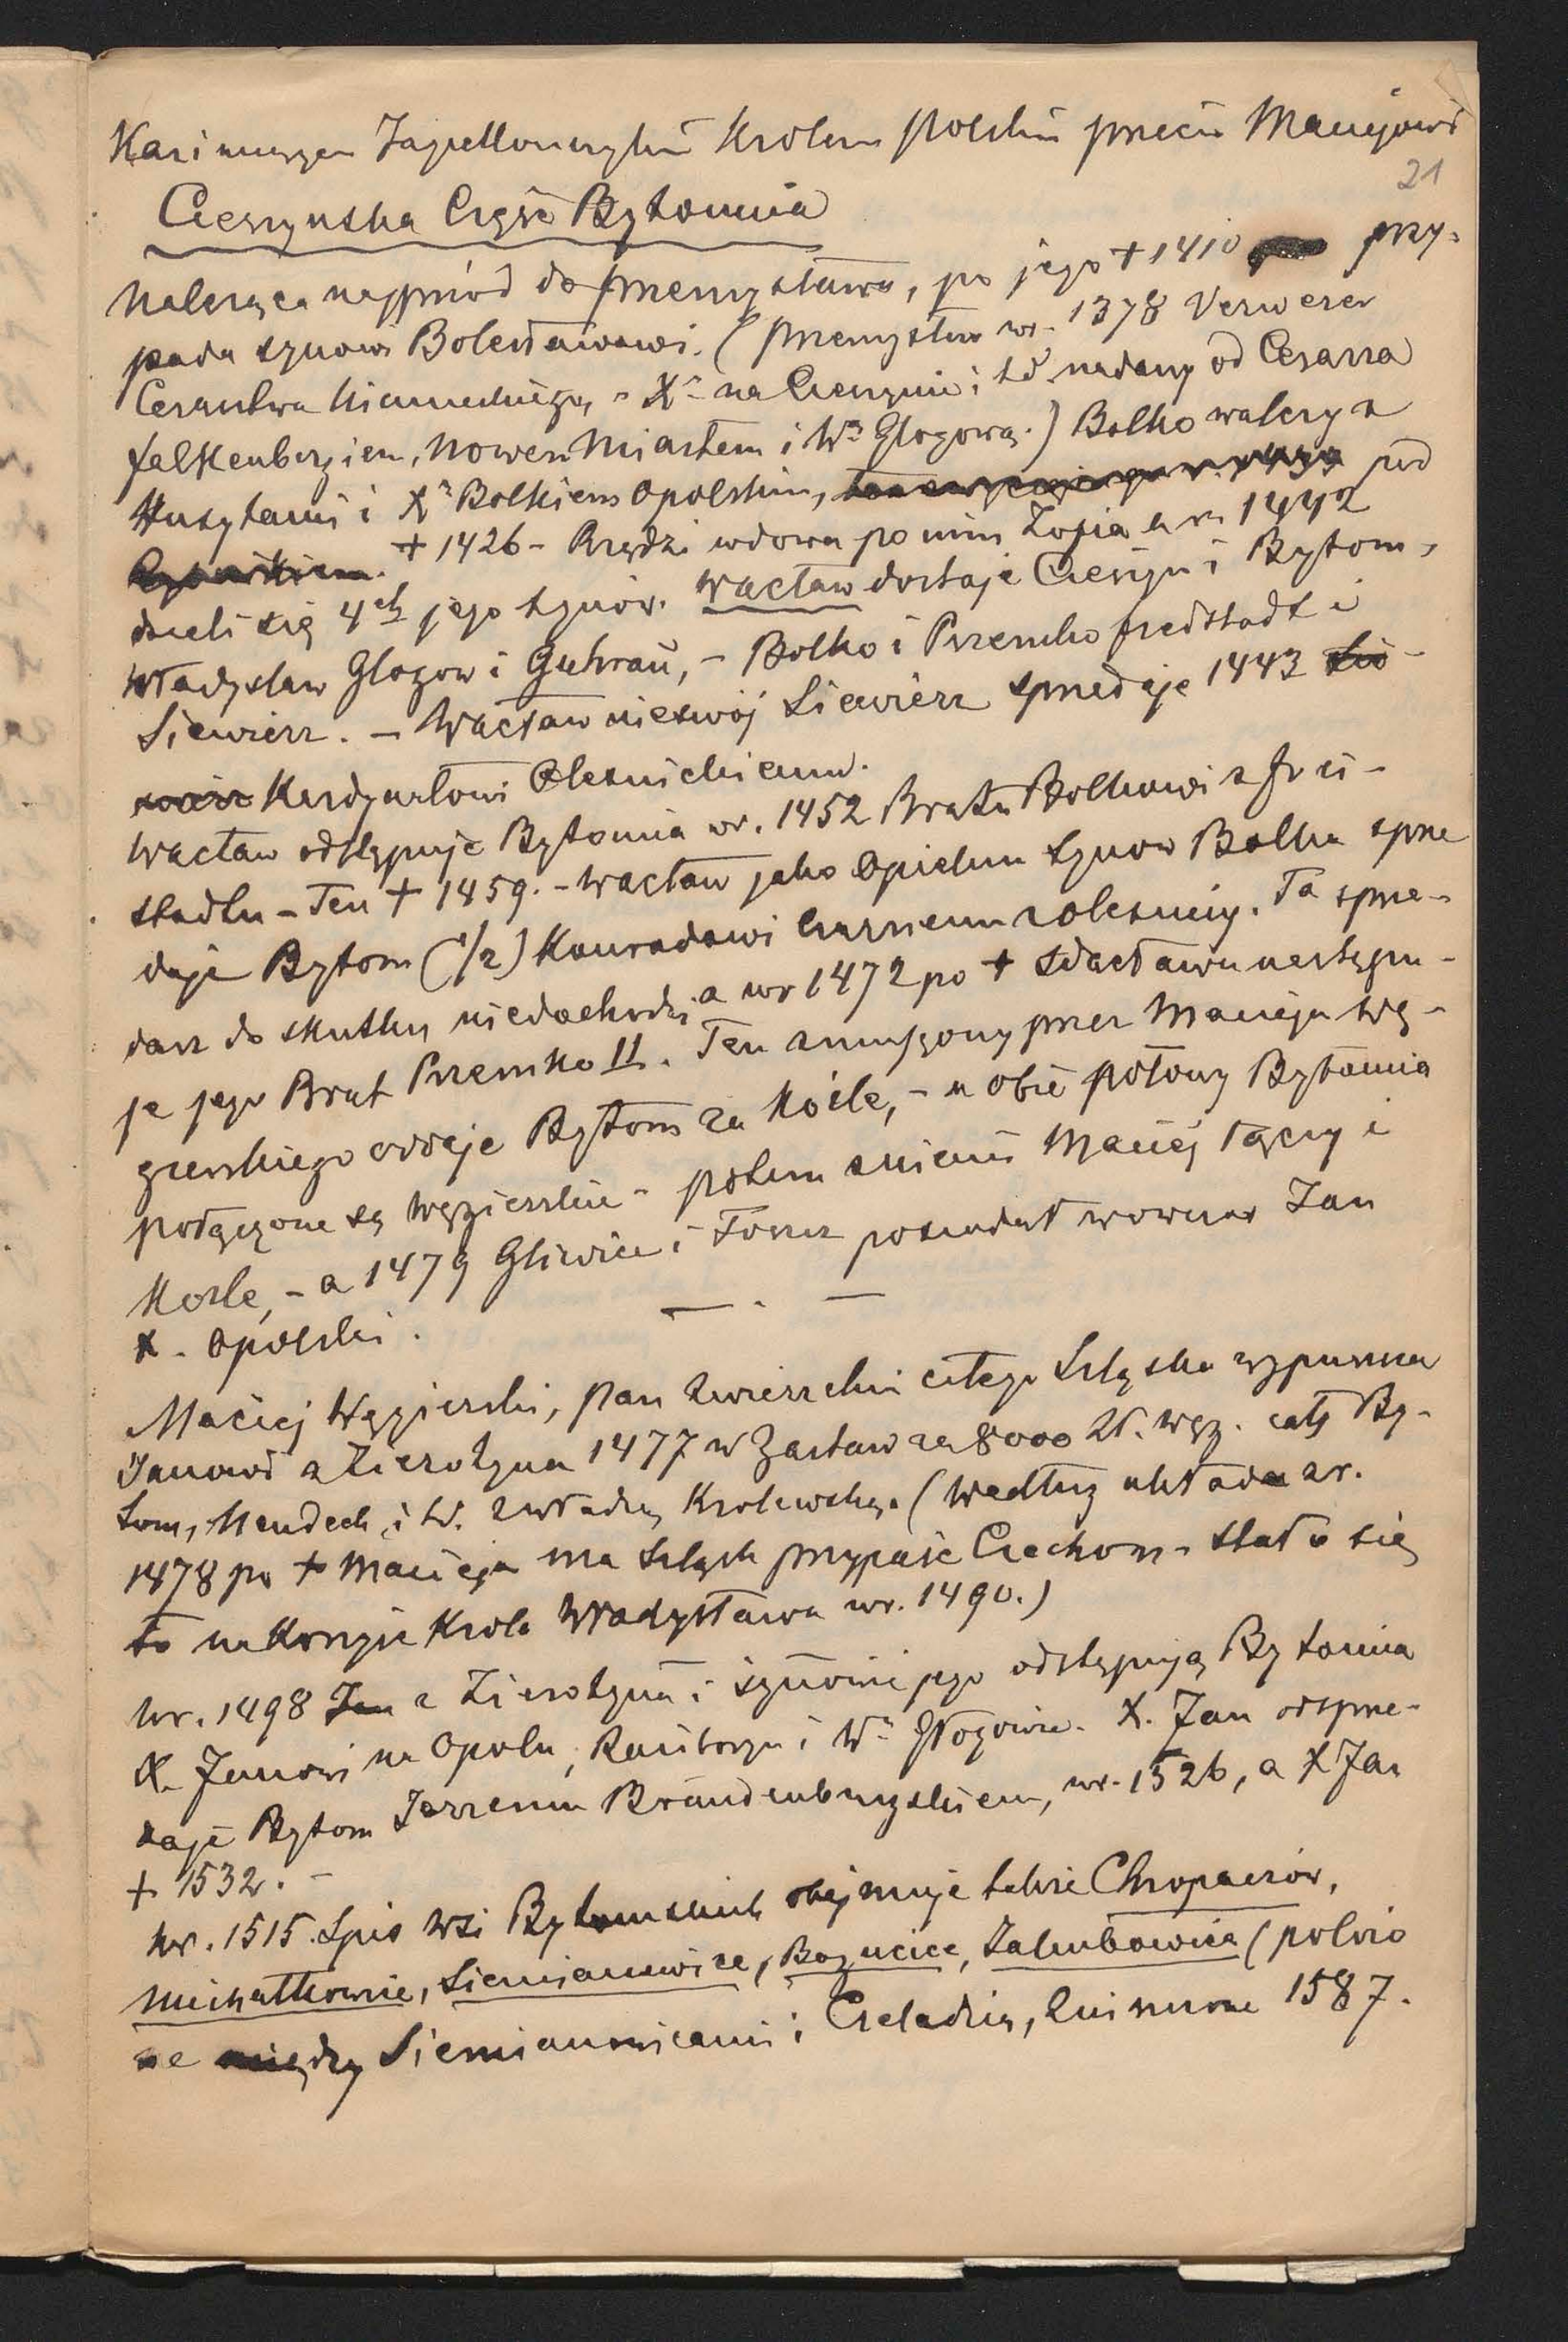 Kazimierzem Jagiellończykiem Królem Polskim przeciw Maciejowi
21
Cieszyńska Część Bytomia
należąca najprzód do Przemysława, po jego + 1410 przy-
pada synowi Bolesławowi. (Przemysław w r. 1378 Verweser
Cesarstwa Niemieckiego, X. na Cieszynie i td. nadany od Cesarza
Falkenbergiem, Nowem Miastem i W. Głogową.) Bolko walczy z
Husytami i X. Bolkiem Opolskim, pod
+ 1426 - Rządzi wdowa po nim Zofia a w r. 1442
dzieli się 4ch jego synów. Wacław dostaje Cieszyn i Bytom,
Władysław Glogow i Guhrau, - Bolko i Przemko Freistadt i
Siewierz. - Wacław nieswój Siewierz sprzedaje 1443 Sie-
wierz Kardynałowi Oleśnickiemu.
Wacław odstępuje Bytomia w r. 1452 Bratu Bolkowi z Frei-
stadtu - Ten + 1459. - Wacław jako Opiekun synow Bolka sprze
daje Bytom (1/2) Konradowi Czarnemu z Oleśnicy. Ta sprze-
darz do skutku niedochodzi a w r 1472 po + Wacława następu-
je jego Brat Przemko II. Ten zmuszony przez Macieja Wę-
gierskiego oddaje Bytom za Koźle, - a obie połowy Bytomia
połączone są Węgierskie - potem zmienił Maciej Rączy i
Kozle, - a 1479 Gliwice i Toszek posiadał wowczas Jan
X. Opolski.
Maciej Węgierski, Pan Zwierzchni całego Szląska wypuszcza
Janowi z Zierotyna 1477 w Zastaw za 8000 Zł. węg. cały By-
tom, Neudeck i t.d. z władzą Krolewską. (Według układu z r.
1478 po + Macieja ma Szląsk przypaść Czechom - stało się
to na Korzyść Krola Władysława w r. 1490.)
W r. 1498 Jan z Zierotyna i synowie jego odstępują Bytomia
X. Janowi na Opolu, Raciborzu i W. Głogowie. X. Jan odsprze-
daje Bytom Jerzemu Brandenburgskiem, w r. 1526, a X Jan
+ 1532. -
W r. 1515. Spis Wsi Bytomskich obejmuje także Chropaczów,
Michałkowice, Siemianowice, Bogucice, Jakubowice (położo
ne między Siemianowicami i Czeladzią, Zniszczone 1587.